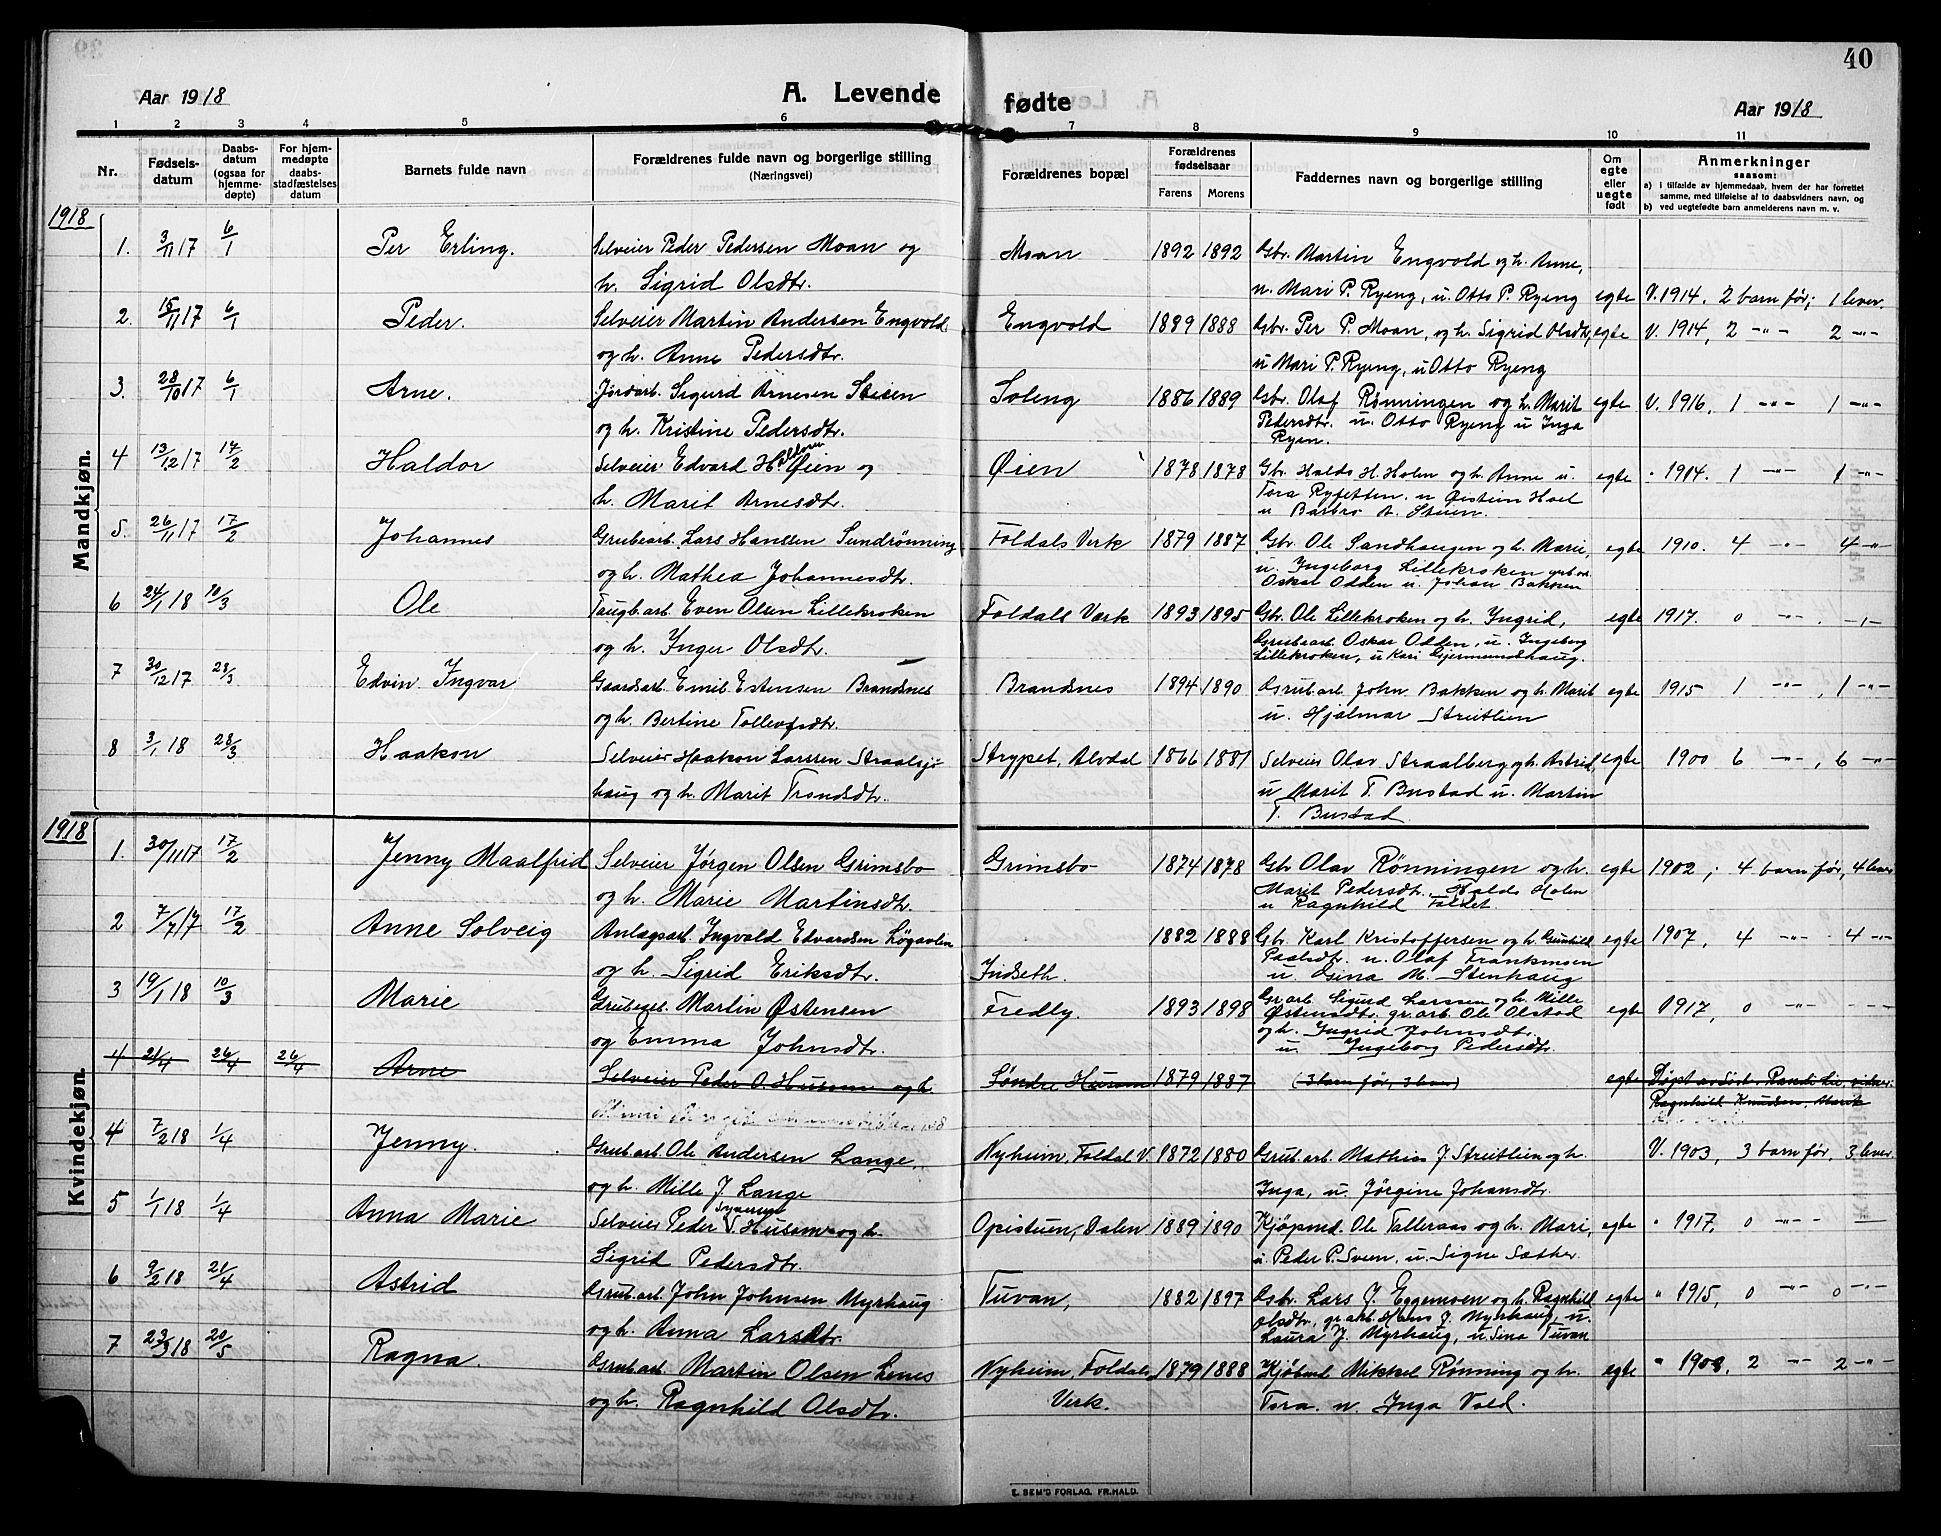 40
Aar 1918
A. Levende
fødte
Aar 1918
1 2 3 4 5 6 7 8 9 10 11
Nr.
Fødsels-
datum
Daabs-
datum
(ogsaa for
hjemme-
døpte)
For hjem-
medøpte
daabs-
stadfæstelses
datum
Barnets fulde navn
Forældrenes fulde navn og borgerlige stilling
(Næringsvei)
Forældrenes bopæl
Forældrenes
fødselsaar
Farens Morens
Faddernes navn og borgerlige stilling
Om
egte
eller
uegte
født
Anmerkninger
saasom:
a) i tilfælde av hjemmedaab, hvem der har forrettet
samme, med tilføielse af to daabsvidners navn, og
b) ved uegtefødte barn anmelderens navn m. v.
1918
Mandkjøn.
1. 3/11 17 6/1 Per Erling. Selveier Peder Pedersen Moan og Moan 1892 1892 Gbr. Martin Engvold og h. Anne,
h. Sigrid Olsdtr. u. Mari P. Ryeng, u. Otto P. Ryeng egte V. 1914, 2 barn før; 1 lever.
2. 15/11 17 6/1 Peder. Selveier Martin Andersen Engvold Engvold 1889 1888 Gbr. Per P. Moan, og h. Sigrid Olsdtr, egte V. 1914, 2 -"- 2 -"-
og h. Anne Pedersdtr. u Mari P. Ryeng, u Otto Ryeng
3. 28/10 17 6/1 Arne. Jordarb. Sigurd Arnesen Steien Soleng 1886 1889 Gbr. Olaf Rønningen og h. Marit egte V. 1916, 1 -"- 1 -"-
og h. Kristine Pedersdtr. Pedersdtr. u. Otto Ryeng u Inga
Ryen.
4 13/12 17 17/2 Haldor Selveier Edvard H. Øien og Øien 1878 1878 Gbr. Haldo H. Holen og h. Anne u. egte " 1914. 1 -"- 1 -"-
h. Marit Arnesdtr. Tora Rysetten. u Øistein Hoel
u Barbro A. Steien.
5. 26/11 17 17/2 Johannes Grubearb. Lars Hanssen Sundrønning Foldals Verk 1879 1887 Gbr. Ole Sandhaugen og h. Marie, egte 1910. 4 " 4 -"-
og h. Mathea Johannesdtr. u. Ingeborg Lillekroken
Oskar Odden u. Johan Bakken
6 24/1 18 10/3 Ole Taugb.arb. Even Olsen Lillekroken Foldals Verk 1893 1895 Gbr. Ole Lillekroken og h. Ingrid, egte 1917. 0 -"- -"-
og h. Inger Olsdtr. Grubearb. Oskar Odden, u. Ingeborg
Lillekroken, u Kari Gjermundshaug.
7 30/12 17 28/3 Edvin Ingvar Gaardsarb. Emil Estensen Brandsnes Brandsnes 1894 1890 Grub.arb. John Bakken og h. Marit egte 1915 1 -"-, 1 -"-
og h. Bertine Tollevsdtr. u. Hjalmar Streitlien
8 3/1 18 28/3 Haakon Selveier Haakon Larssen Straalsjø Strypet, Alvdal 1866 1881 Selveier Olav Straalberg og h. Astrid, egte 1900 6 -"-, 6 -"-
haug og h. Marit Trondsdtr. u Marit T. Bustad u. Martin
T. Bustad.
1918
Kvindekjøn.
1. 30/11 17 17/2 Jenny Maalfrid Selveier Jørgen Olsen Grimsbo Grimsbo 1874 1878 Gbr Olav Rønningen og h. egte 1902; 4 barn før, 4 lever
og h. Marie Martinsdtr. Marit Pedersdtr. Haldo Holen
u Ragnhild Foldet.
2 7/7 17 17/2 Anne Solveig Anlægsarb. Ingvald Edvardsen Løgavlen 1882 1888 Gbr. Karl Kristoffersen og h. Gunhild egte 1907, 4 -"- 4 -"-
og h. Sigrid Eriksdtr. Indseth. Paalsdtr. u. Olaf Frankmoen
u Gina M. Stenhaug
3 19/1 18 10/3 Marie Grubearb. Martin Østensen Fredly. 1893 1898 Gr.arb. Sigurd Larssen og h. Mille egte 1917, 0 -"- ---
og Emma Johnsdtr. Østensdtr. gr.arb. Ole Olstad
og h. Ingrid Johnsdtr.
u. Ingeborg Pedersdtr.
4 21/4 26/4 26/4 Arne Selveier Peder O. Husom og h. Søndre Husom 1879 1887 (3 barn før, 3 lever) egte Døpt av Randi Lie,
Ragnhild Knudsen, Marit
4 7/2 18 1/4 Jenny. Grub.arb. Ole Andersen Lange, Nyheim, Foldal V. 1872 1880 Grub.arb. Mathias J. Streitlien og h. V. 1903, 3 barn før, 3 lever
og h. Mille J. Lange Inga, u. Jørgine Johansdtr.
5 1/1 18 1/4 Anna Marie Selveier Peder S. Husom og h. Opistuen, Dalen 1889 1890 Kjøpmd. Ole Talleraas og h. Mari, egte " 1917, 0 -"- —
Sigrid Pedersdtr. u Peder P. Sveen, u. Signe Sæther.
6 9/2 18 21/4 Astrid Grub.arb. John Johnsen Myrhaug Tuvan, 1882 1897 Gbr. Lars J Eggemoen og h. Ragnhild egte " 1915, 0 -"- 0 -"-
og h. Anna Larsdtr Olsdtr, gr.arb. Hans J. Myrhaug, u.
Laura J. Myrhaug, u. Sina Tuvan
7 23/3 18 20/5 Ragna. Grub.arb. Martin Olsen Lenes Nyheim, Foldals 1879 1888 Kjøbmd Mikkel Rønning og h. egte " 1908, 2 -"- 2 -"-
og h. Ragnhild Olsdtr. Verk. Tora. u. Inga Vold.
E. SEM'S FORLAG. FR.HALD.